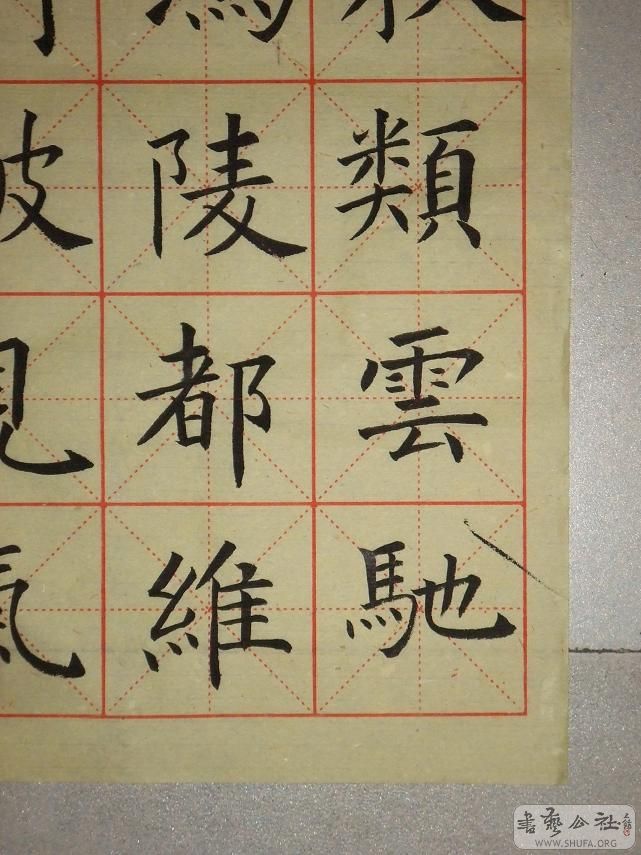 類雲馳
陵都維
氣
書藝公社
WWW.SHUFA.ORG